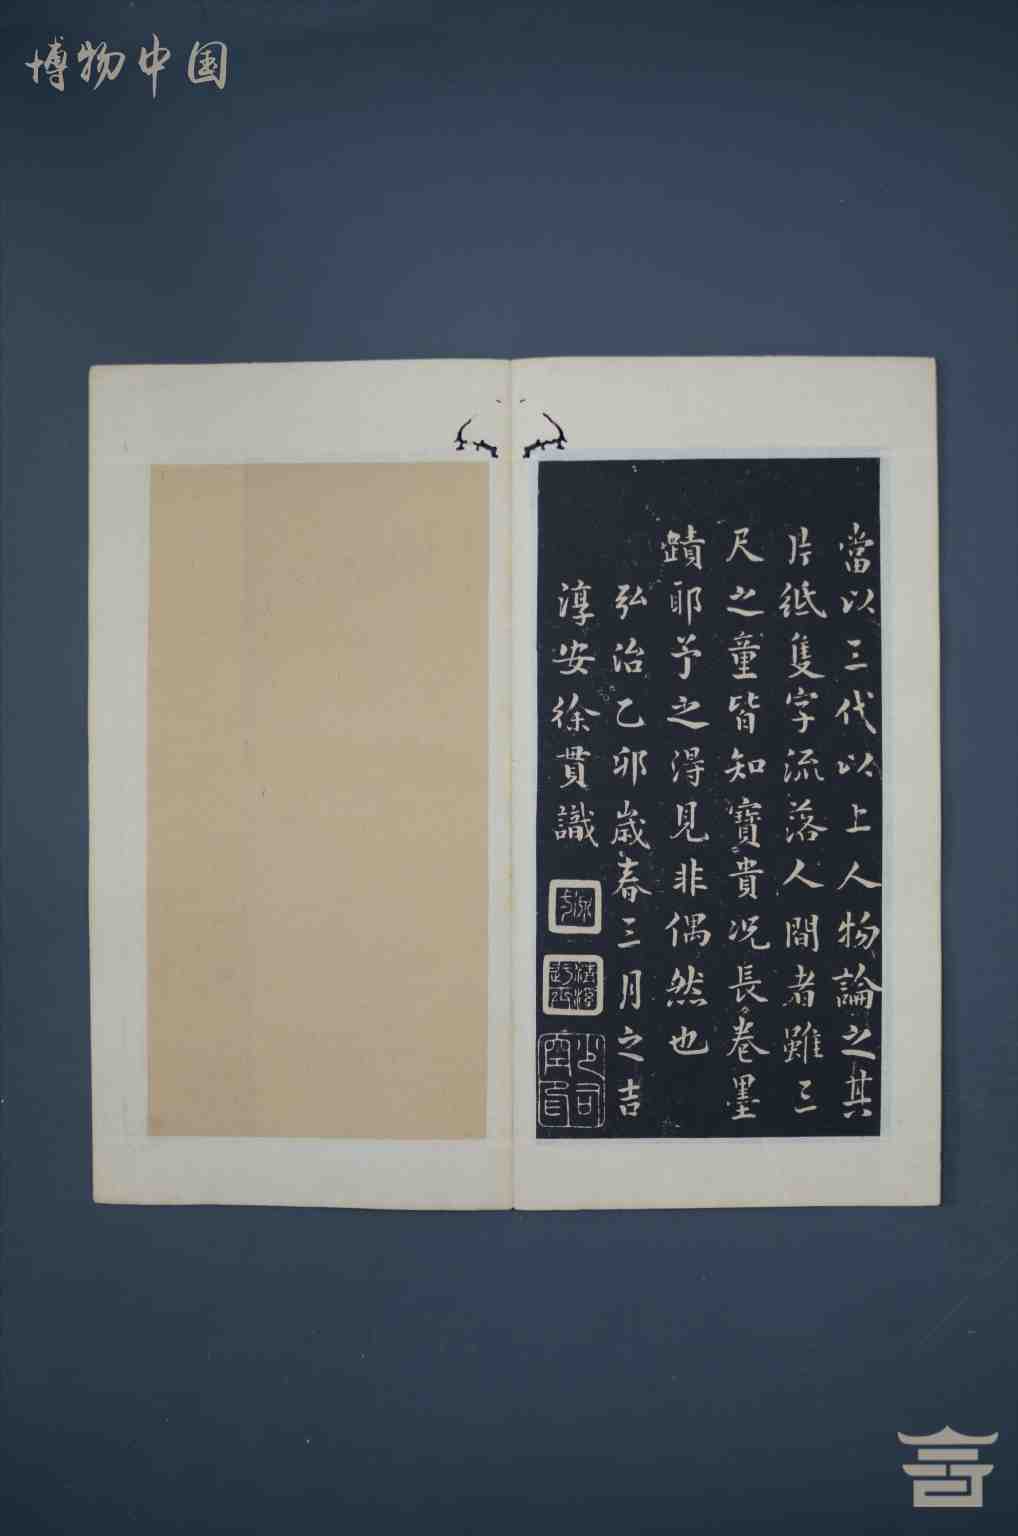 博物中国
當以三代以上人物論之其
片紙隻字流落人間者雖三
尺之童皆知寶貴况長卷墨
蹟耶予之得見非偶然也
弘治乙卯歲春三月之吉
淳安徐貫識